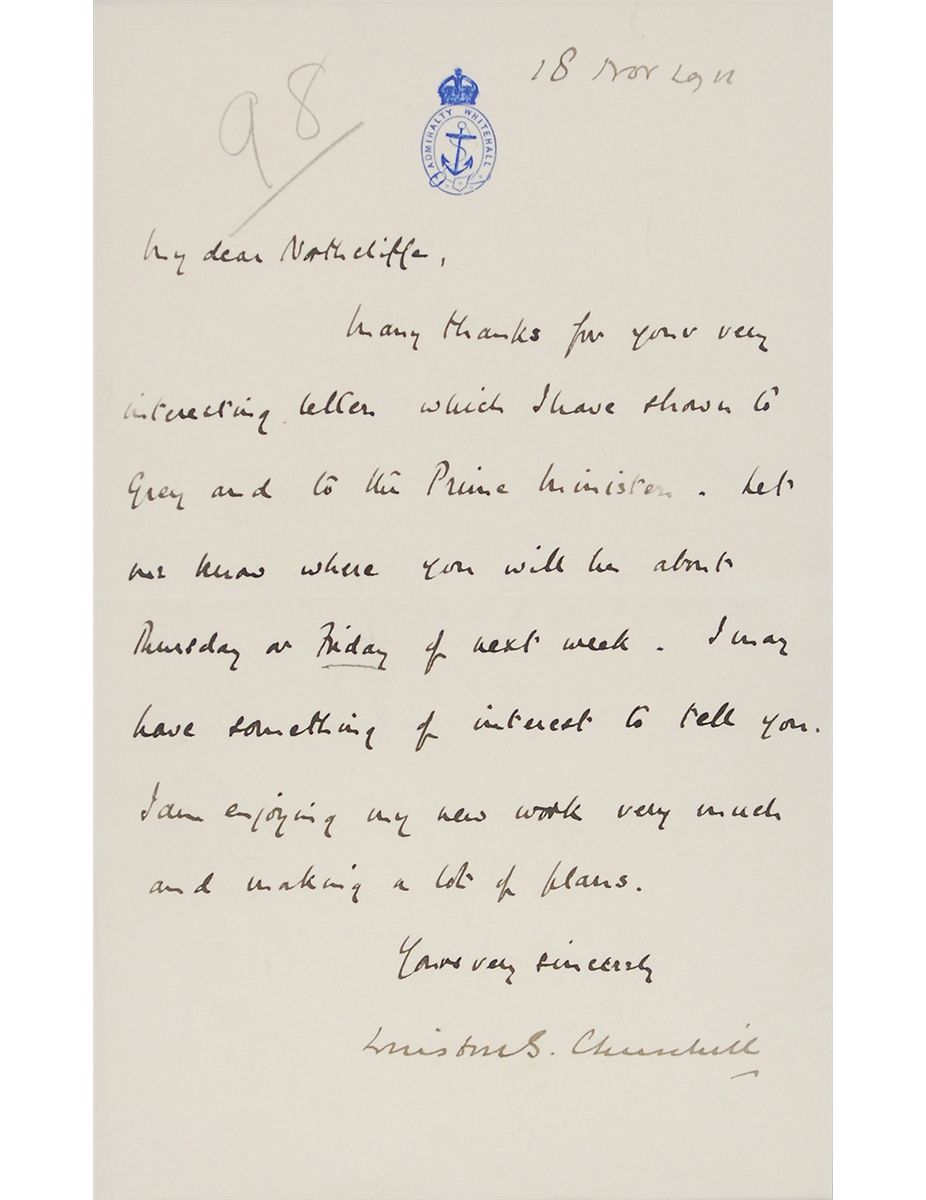 98
18 Nov 1911
ADMIRALTY WHITEHALL
My dear Northcliffe,
Many thanks for your very
interesting letter which I have shown to
Grey and to the Prime Minister. Let
me know where you will be about
Thursday or Friday of next week. I may
have something of interest to tell you.
I am enjoying my new work very much
and making a lot of plans.
Yours very sincerely
Winston S. Churchill